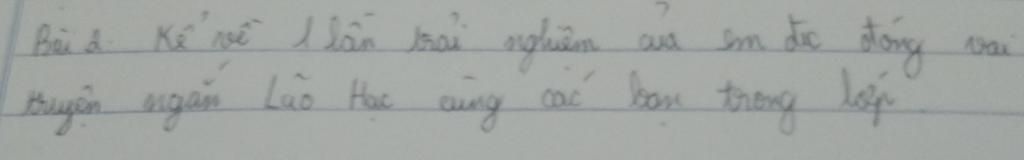 Bài 2. Kể về 1 lần trải nghiệm của em đc đóng vai
truyện ngắn Lão Hạc cùng các bạn trong lớp.